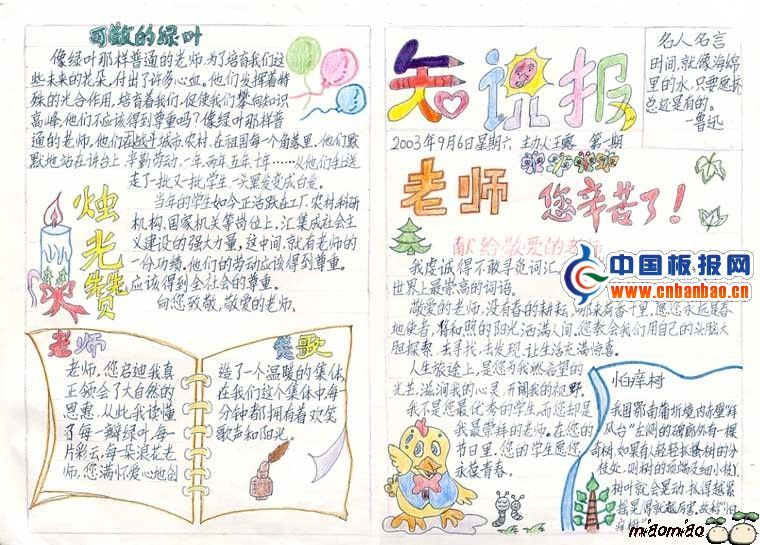 可敬的绿叶
像绿叶那样普通的老师,为了培育我们这
些未来的花朵,付出了许多心血。他们发挥着特
殊的光合作用,培育着我们,促使我们攀向知识
高峰,他们不应该得到尊重吗?像绿叶那样普
通的老师,他们 城市、农村,在祖国每一个角落里,他们默
默地站在讲台上,辛勤劳动,一年、两年、五年、十年……从他们手上送
走了一批又一批学生,一头黑发变成白发。
当年的学生如今正活跃在工厂、农村、科研
机构、国家机关等岗位上,汇集成社会主
义建设的强大力量,这中间,就有老师的
一份功绩。他们的劳动应该得到尊重。
应该得到全社会的尊重。
向您致敬,敬爱的老师。
烛光赞
老师
老师,您启迪我真
正领会了大自然的
恩惠,从此我读懂
了每一瓣绿叶,每一
片彩云,每朵浪花老
师,您满怀爱心地创
赞歌
造了一个温暖的集体,
在我们这个集体中每一
分钟都拥有着欢笑
歌声和阳光。
知识报
名人名言
时间,就像海绵
里的水,只要愿挤,
总还是有的。
—鲁迅
2003年9月6日星期六 主办人:王 第一期
老师
您辛苦了!
献给敬爱的老师
我虔诚得不敢寻觅词汇,
世界上最崇高的词语。
敬爱的老师,没有春的耕耘,哪来荷香千里,愿您永远是春
地使者,将和照的阳光洒满人间,您教会我们用自己的头脑大
胆探索,去寻找,去发现,让生活充满惊喜。
人生旅途上,是您为我燃希望的
光芒,滋润我的心灵,开阔我的视野。
我不是您最优秀的学生,而您却是
我最崇拜的老师。在您的
节日里,您的学生愿您
永葆青春。
怕痒树
我国鄂南蒲圻境内赤壁“拜
风台”左侧的 有一棵
奇树,如果有人轻轻扒搔树的分
枝处,则树的顶端及细小枝
树叶就会晃动,抓得越紧
摇晃得就越厉害,故称“怕
痒树”
中国板报网
www.cnbanbao.cn
miaomiao